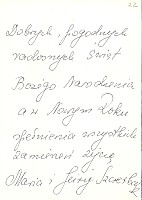 22
Dobrych, pogodnych
radosnych Świąt
Bożego Narodzenia
a w Nowym Roku
spełnienia wszystkich
zamierzeń życzą
Maria i Jerzy